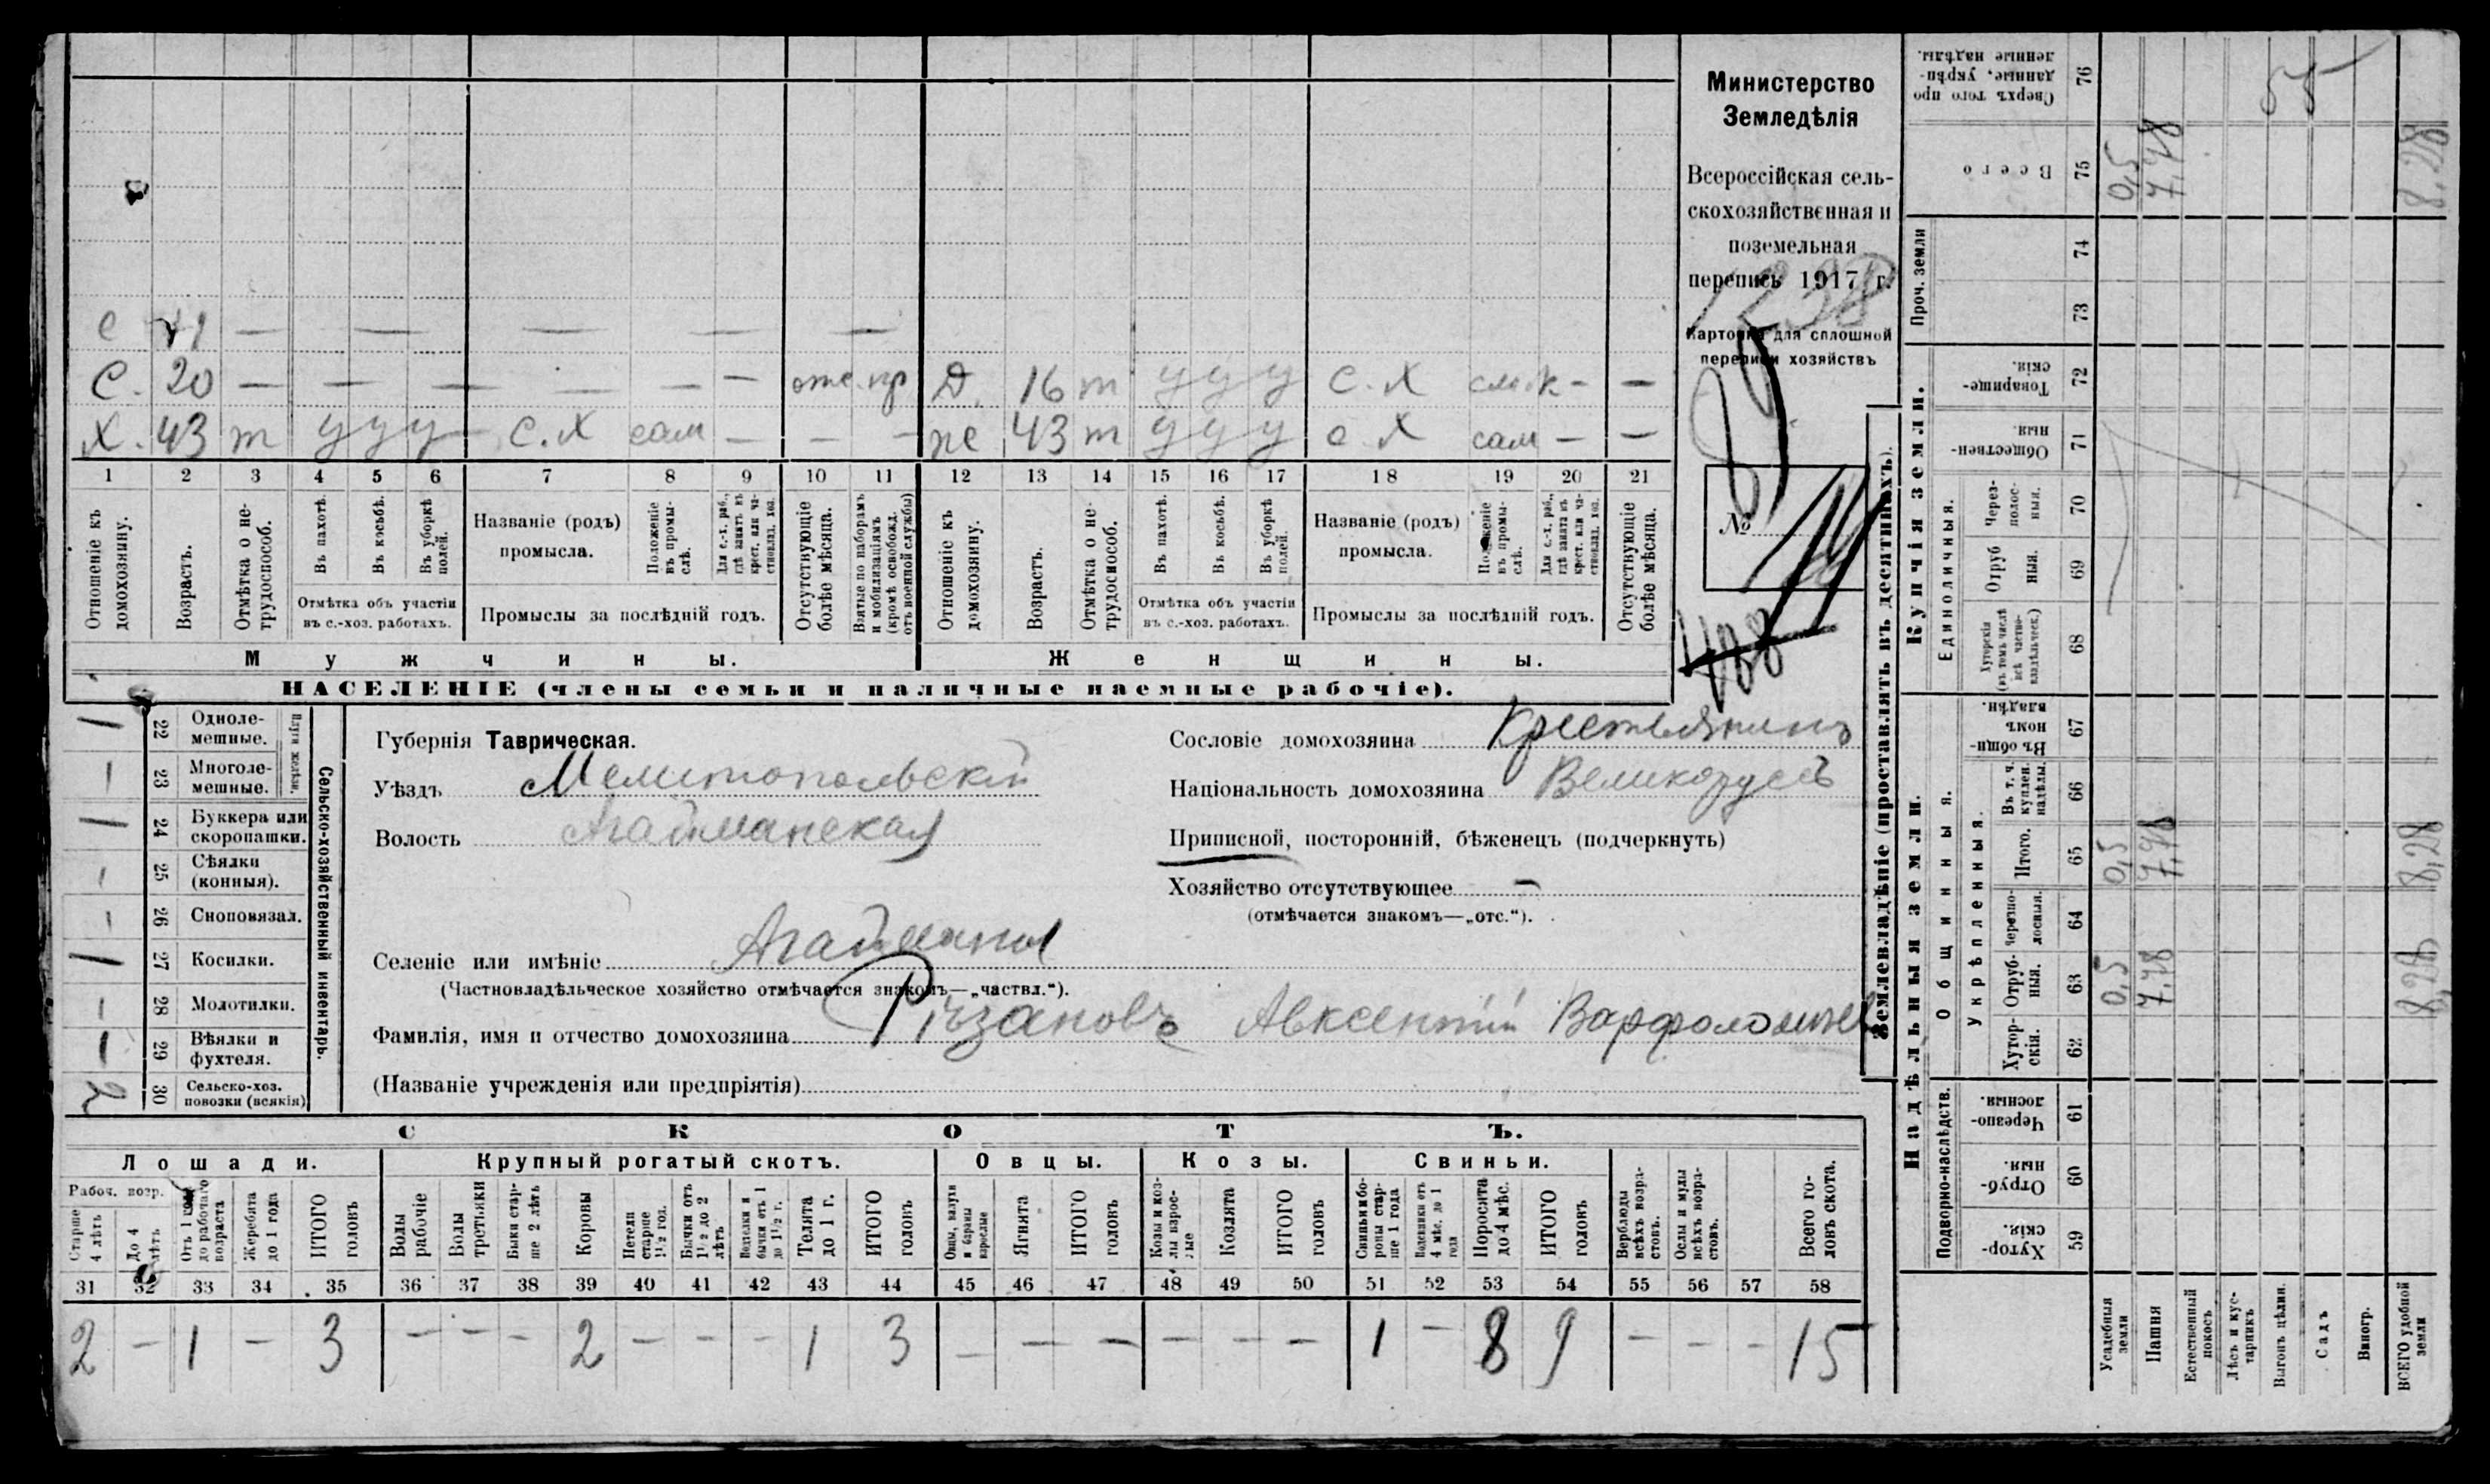 Министерство
Земледѣлія
Всероссійская сель-
скохозяйственная и
поземельная
перепись 1917 г.
1238
Карточка для сплошной
переписи хозяйствъ
№
488
С — — — — —
С. 20 — — — — — — отс. пр Д. 16 т у у у С. Х —
Х. 43 т у у у С.Х сам — — — же 43 т у у у с Х сам — —
1 2 3 4 5 6 7 8 9 10 11 12 13 14 15 16 17 18 19 20 21
Отношеніе къ домохозяину.
Возрастъ.
Отмѣтка о не-трудоспособ.
Въ пахотѣ.
Въ косьбѣ.
Въ уборкѣ полей.
Отмѣтка объ участіи въ с.-хоз. работахъ.
Названіе (родъ) промысла.
Положеніе въ промы-слѣ.
Для с.-х. раб., гдѣ занятъ въ крест. или ча-стновлад. хоз.
Промыслы за послѣдній годъ.
Отсутствующіе болѣе мѣсяца.
Взятые по наборамъ и мобилизаціямъ (кромѣ освобожд. отъ военной службы)
Отношеніе къ домохозяину.
Возрастъ.
Отмѣтка о не-трудоспособ.
Въ пахотѣ.
Въ косьбѣ.
Въ уборкѣ полей.
Отмѣтка объ участіи въ с.-хоз. работахъ.
Названіе (родъ) промысла.
Положеніе въ промы-слѣ.
Для с.-х. раб., гдѣ занята въ крест. или ча-стновлад. хоз.
Промыслы за послѣдній годъ.
Отсутствующіе болѣе мѣсяца.
Мужчины.
Женщины.
НАСЕЛЕНІЕ (члены семьи и наличные наемные рабочіе).
Сельско-хозяйственный инвентарь.
Плуги желѣзн.
22 Одноле-мешные. —
23 Многоле-мешные. —
24 Буккера или скоропашки. —
25 Сѣялки (конныя). —
26 Сноповязал. —
27 Косилки. —
28 Молотилки. —
29 Вѣялки и фухтеля. —
30 Сельско-хоз. повозки (всякія) 2
Губернія Таврическая.
Уѣздъ Мелитопольскій
Волость Агайманская
Сословіе домохозяина Крестьянинъ
Національность домохозяина Великорусъ
Приписной, посторонній, бѣженецъ (подчеркнуть)
Хозяйство отсутствующее —
(отмѣчается знакомъ—„отс.“).
Селеніе или имѣніе Агайманы
(Частновладѣльческое хозяйство отмѣчается знакомъ—„частвл.“).
Фамилія, имя и отчество домохозяина Рѣзановъ Авксентій Варфоломѣев
(Названіе учрежденія или предпріятія)
СКОТЪ.
Лошади. Крупный рогатый скотъ. Овцы. Козы. Свиньи.
Рабоч. возр.
Старше 4 лѣтъ
До 4 лѣтъ
Отъ 1 года до рабочаго возраста
Жеребята до 1 года
ИТОГО головъ
Волы рабочіе
Волы третьяки
Быки стар-ше 2 лѣтъ
Коровы
Нетели старше 1½ год.
Бычки отъ 1½ до 2 лѣтъ
Водялки и бычки отъ 1 до 1½ г.
Телята до 1 г.
ИТОГО головъ
Овцы, валухи и бараны взрослые
Ягнята
ИТОГО головъ
Козы и коз-лы взрос-лые
Козлята
ИТОГО головъ
Свиньи и бо-ровы стар-ше 1 года
Подсвинки отъ 4 мѣс. до 1 года
Поросята до 4 мѣс.
ИТОГО головъ
Верблюды всѣхъ возра-стовъ.
Ослы и мулы всѣхъ возра-стовъ.
Всего го-ловъ скота.
31 32 33 34 35 36 37 38 39 40 41 42 43 44 45 46 47 48 49 50 51 52 53 54 55 56 57 58
2 — 1 — 3 — — — 2 — — — 1 3 — — — — — — 1 — 8 9 — — — 15
Землевладѣніе (проставлять въ десятинахъ).
Надѣльныя земли.
Купчія земли.
Проч. земли
Подворно-наслѣдств.
Общинныя.
Укрѣпленныя.
Единоличныя.
76 Сверхъ того про данные, укрѣп-ленные надѣлы. 55
75 Всего 0,5 7,78 8,28
74
73
72 Товарище-скія.
71 Обществен-ныя.
70 Через-полос-ныя.
69 Отруб ныя.
68 Хуторскія (въ томъ числѣ всѣ частно-владѣльческ.)
67 Въ общи-номъ владѣн.
66 Въ т. ч. куплен. надѣлы.
65 Итого. 0,5 7,78 8,28
64 Черезпо-лосныя.
63 Отруб-ныя. 0,5 7,78 8,28
62 Хутор-скія.
61 Черезпо-лосныя.
60 Отруб-ныя.
59 Хутор-скія.
Усадебныя земли
Пашня
Естественный покосъ
Лѣсъ и кус-тарникъ
Выгонъ цѣлин.
Садъ
Виногр.
ВСЕГО удобной земли